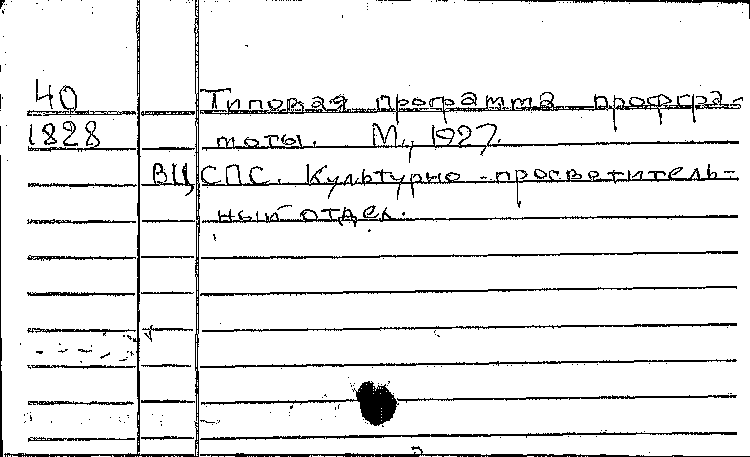 40 Типовая программа профгра-
1828 моты. М., 1927.
ВЦСПС. Культурно-просветитель-
ный отдел.